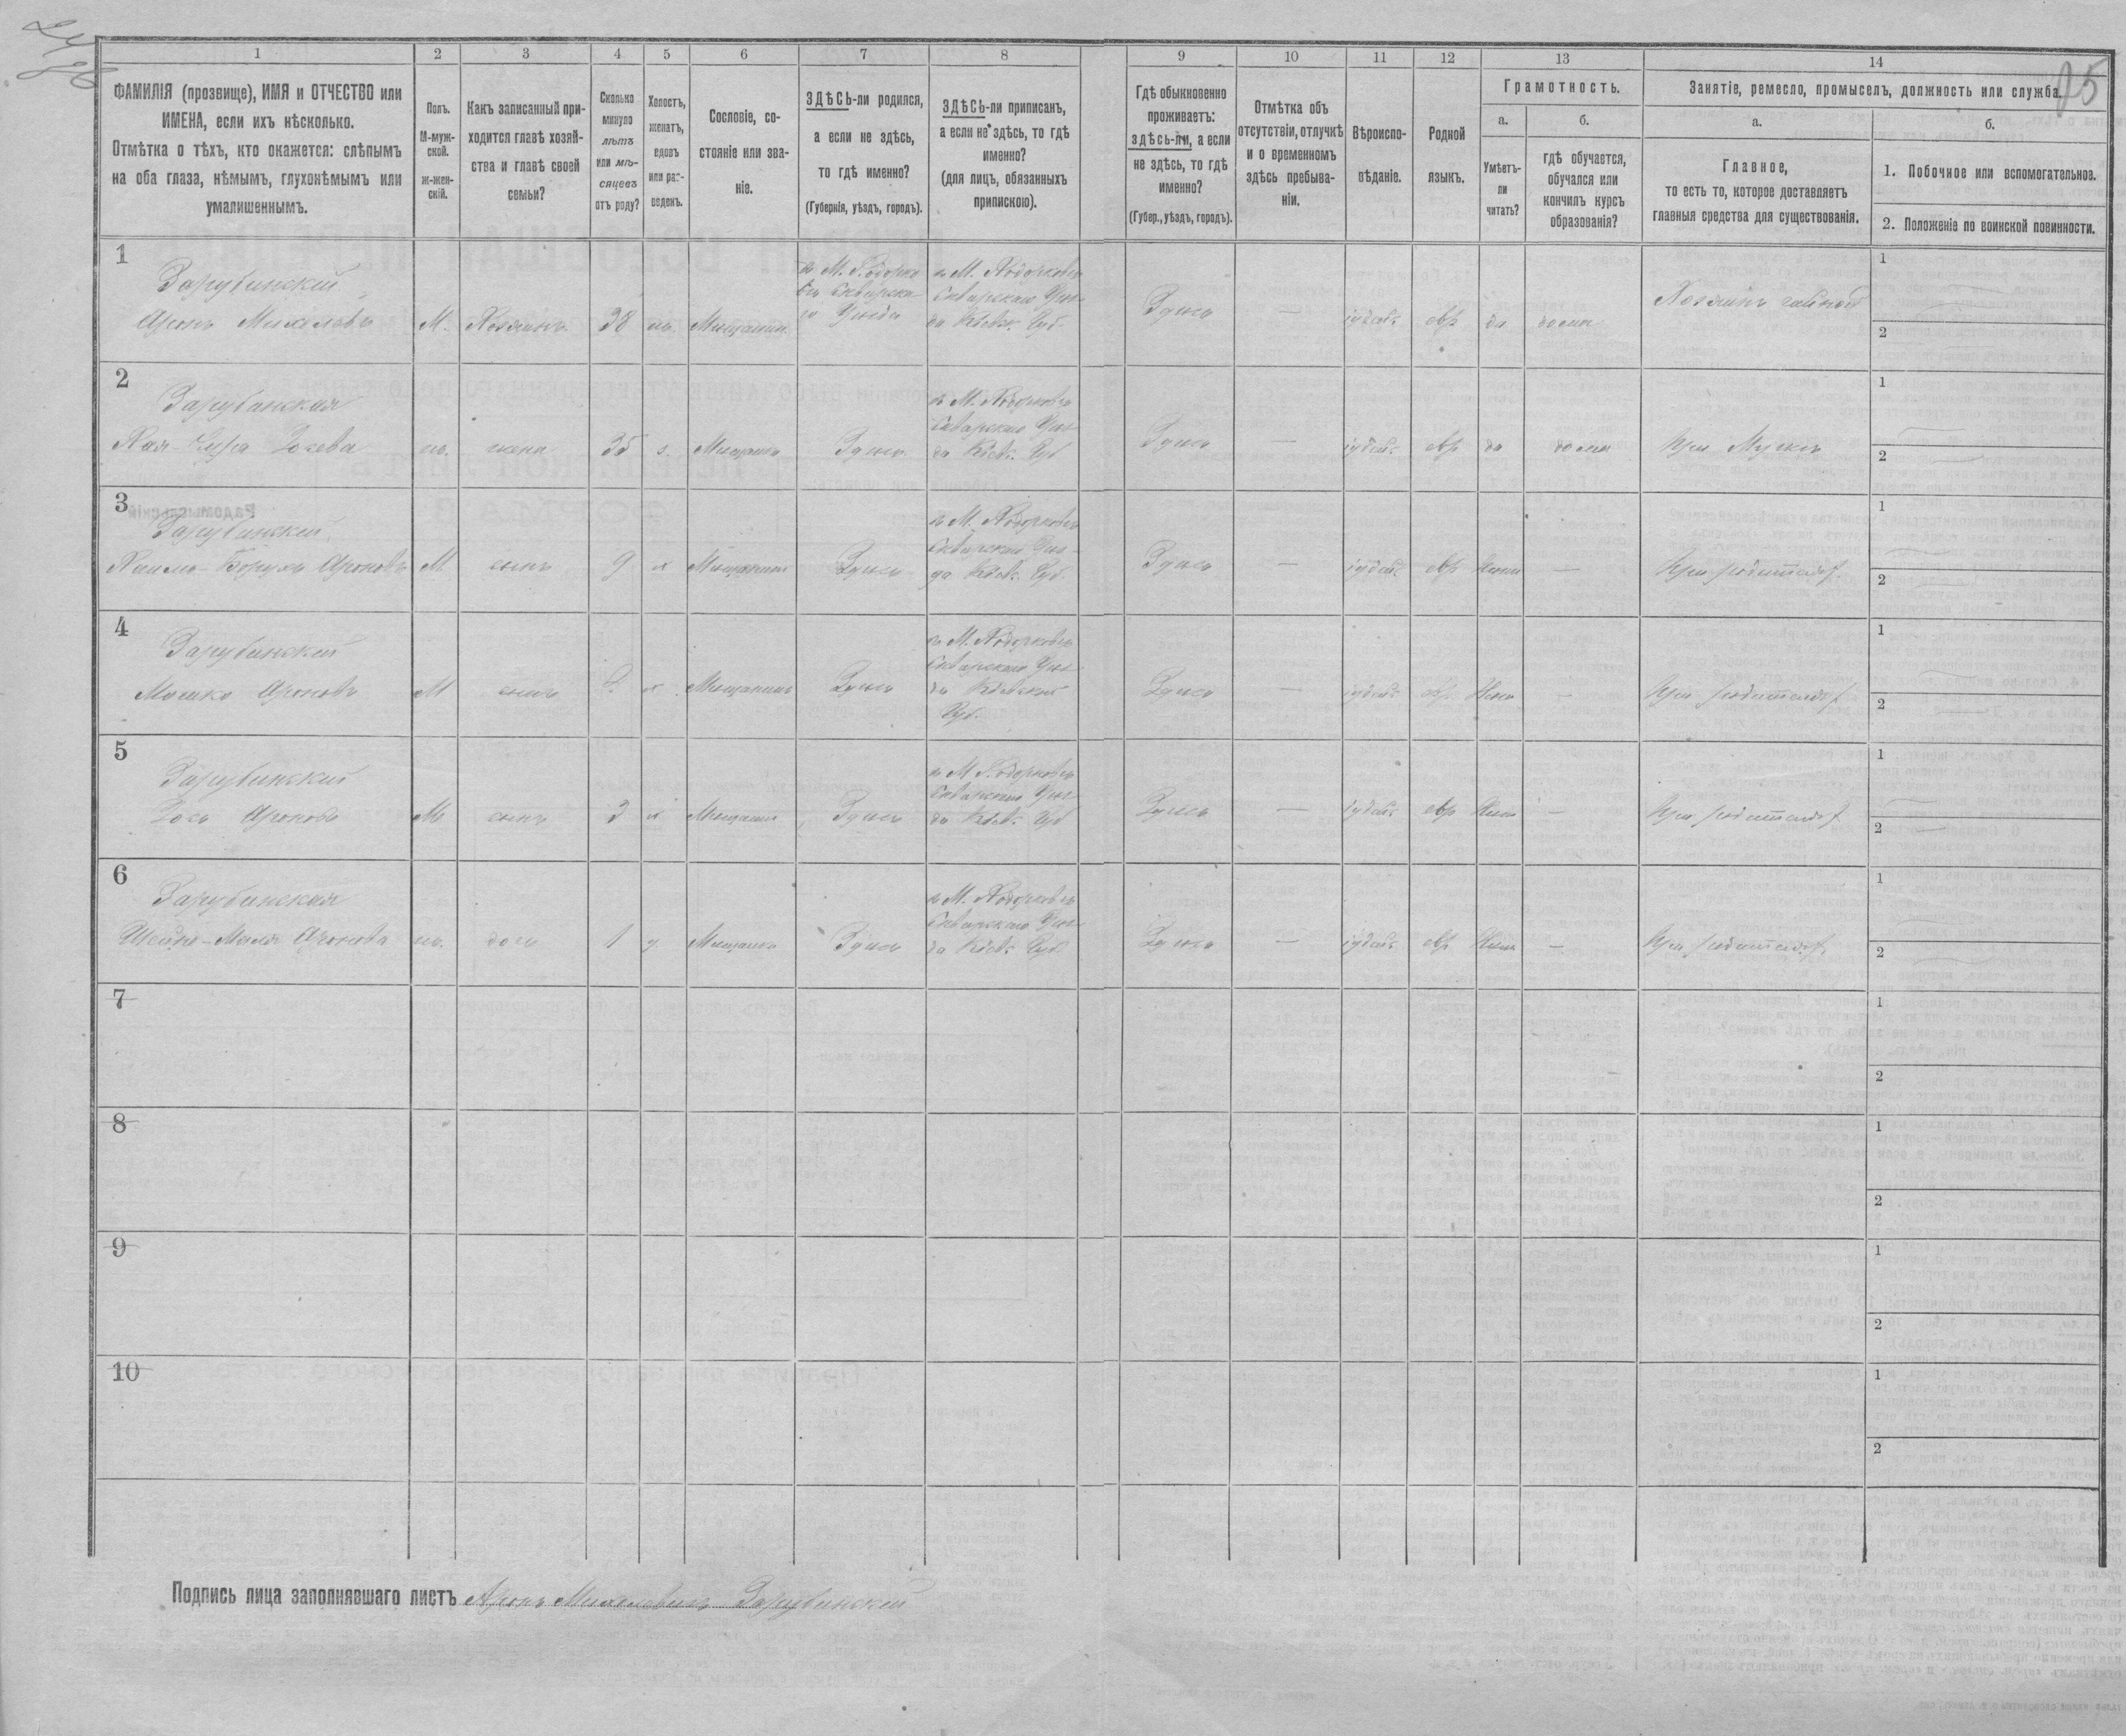 1
2
3
4
5
6
7
8
9
10
11
12
13
14
ФАМИЛІЯ (прозвище), ИМЯ и ОТЧЕСТВО или
ИМЕНА, если ихъ нѣсколько.
Отмѣтка о тѣхъ, кто окажется: слѣпымъ
на оба глаза, нѣмымъ, глухонѣмымъ или
умалишеннымъ.
Полъ.
М-муж-
ской.
ж-жен-
скій.
Какъ записанный при-
ходится главѣ хозяй-
ства и главѣ своей
семьи?
Сколько
минуло
лѣтъ
или мѣ-
сяцевъ
отъ роду?
Холостъ,
женатъ,
вдовъ
или раз-
веденъ.
Сословіе, со-
стояніе или зва-
ніе.
ЗДѢСЬ-ли родился,
а если не здѣсь,
то гдѣ именно?
(Губернія, уѣздъ, городъ).
ЗДѢСЬ-ли приписанъ,
а если не здѣсь, то гдѣ
именно?
(для лицъ, обязанныхъ
припискою).
Гдѣ обыкновенно
проживаетъ:
здѣсь-ли, а если
не здѣсь, то гдѣ
именно?
(Губер., уѣздъ, городъ).
Отмѣтка объ
отсутствіи, отлучкѣ
и о временномъ
здѣсь пребыва-
ніи.
Вѣроиспо-
вѣданіе.
Родной
языкъ.
Грамотность.
а.
Умѣетъ-
ли
читать?
б.
гдѣ обучается,
обучался или
кончилъ курсъ
образованія?
Занятіе, ремесло, промыселъ, должность или служба.
а.
Главное,
то есть то, которое доставляетъ
главныя средства для существованія.
б.
1. Побочное или вспомогательное.
2. Положеніе по воинской повинности.
1
Зарубинскій
Аронъ Михелевъ
М. Хозяинъ 38 ж. Мещанин
в М. Ходорко
въ Сквирска
го Уѣзда
в М. Ходорковѣ
Сквирскаго Уѣз-
да Кіевс. Губ.
Здѣсь — іудейс евр да дома
Хозяинъ
1
2
2
Зарубинская
Хая- Іосева
ж. жена 35 з. Мещанка Здѣсь
в М. Ходорковѣ
Сквирскаго Уѣз-
да Кіевс. Губ
Здѣсь — іудейс евр да дома При Мужѣ
1
2
3
Зарубинскій
Хаимъ-Борухъ Ароновъ
М. сынъ 9 х Мещанинъ Здѣсь
в М. Ходорковѣ
Сквирскаго Уѣз-
да Кіевс. Губ.
Здѣсь — іудейс евр — При родителях
1
2
4
Зарубинскій
Мошко Ароновъ
М сынъ х Мещанинъ Здѣсь
в М. Ходорковѣ
Сквирскаго Уѣз-
да Кіевской
Губ.
Здѣсь — іудейс евр — При родителях
1
2
5
Зарубинскій
Іось Ароновъ
М сынъ 3 х Мещанин Здѣсь
в М Ходорковѣ
Сквирскаго Уѣз-
да Кіевс. Губ
Здѣсь — іудейс евр — При родителях
1
2
6
Зарубинская
Шейна-Маля Аронова
ж. дочь 1 д. Мещанка Здѣсь
в М. Ходорковѣ
Сквирскаго Уѣз-
да Кіевс. Губ.
Здѣсь — іудейс евр — При родителях
1
2
7
1
2
8
1
2
9
1
2
10
1
2
Подпись лица заполнявшаго листъ Аронъ Михелевичъ Зарубинскій